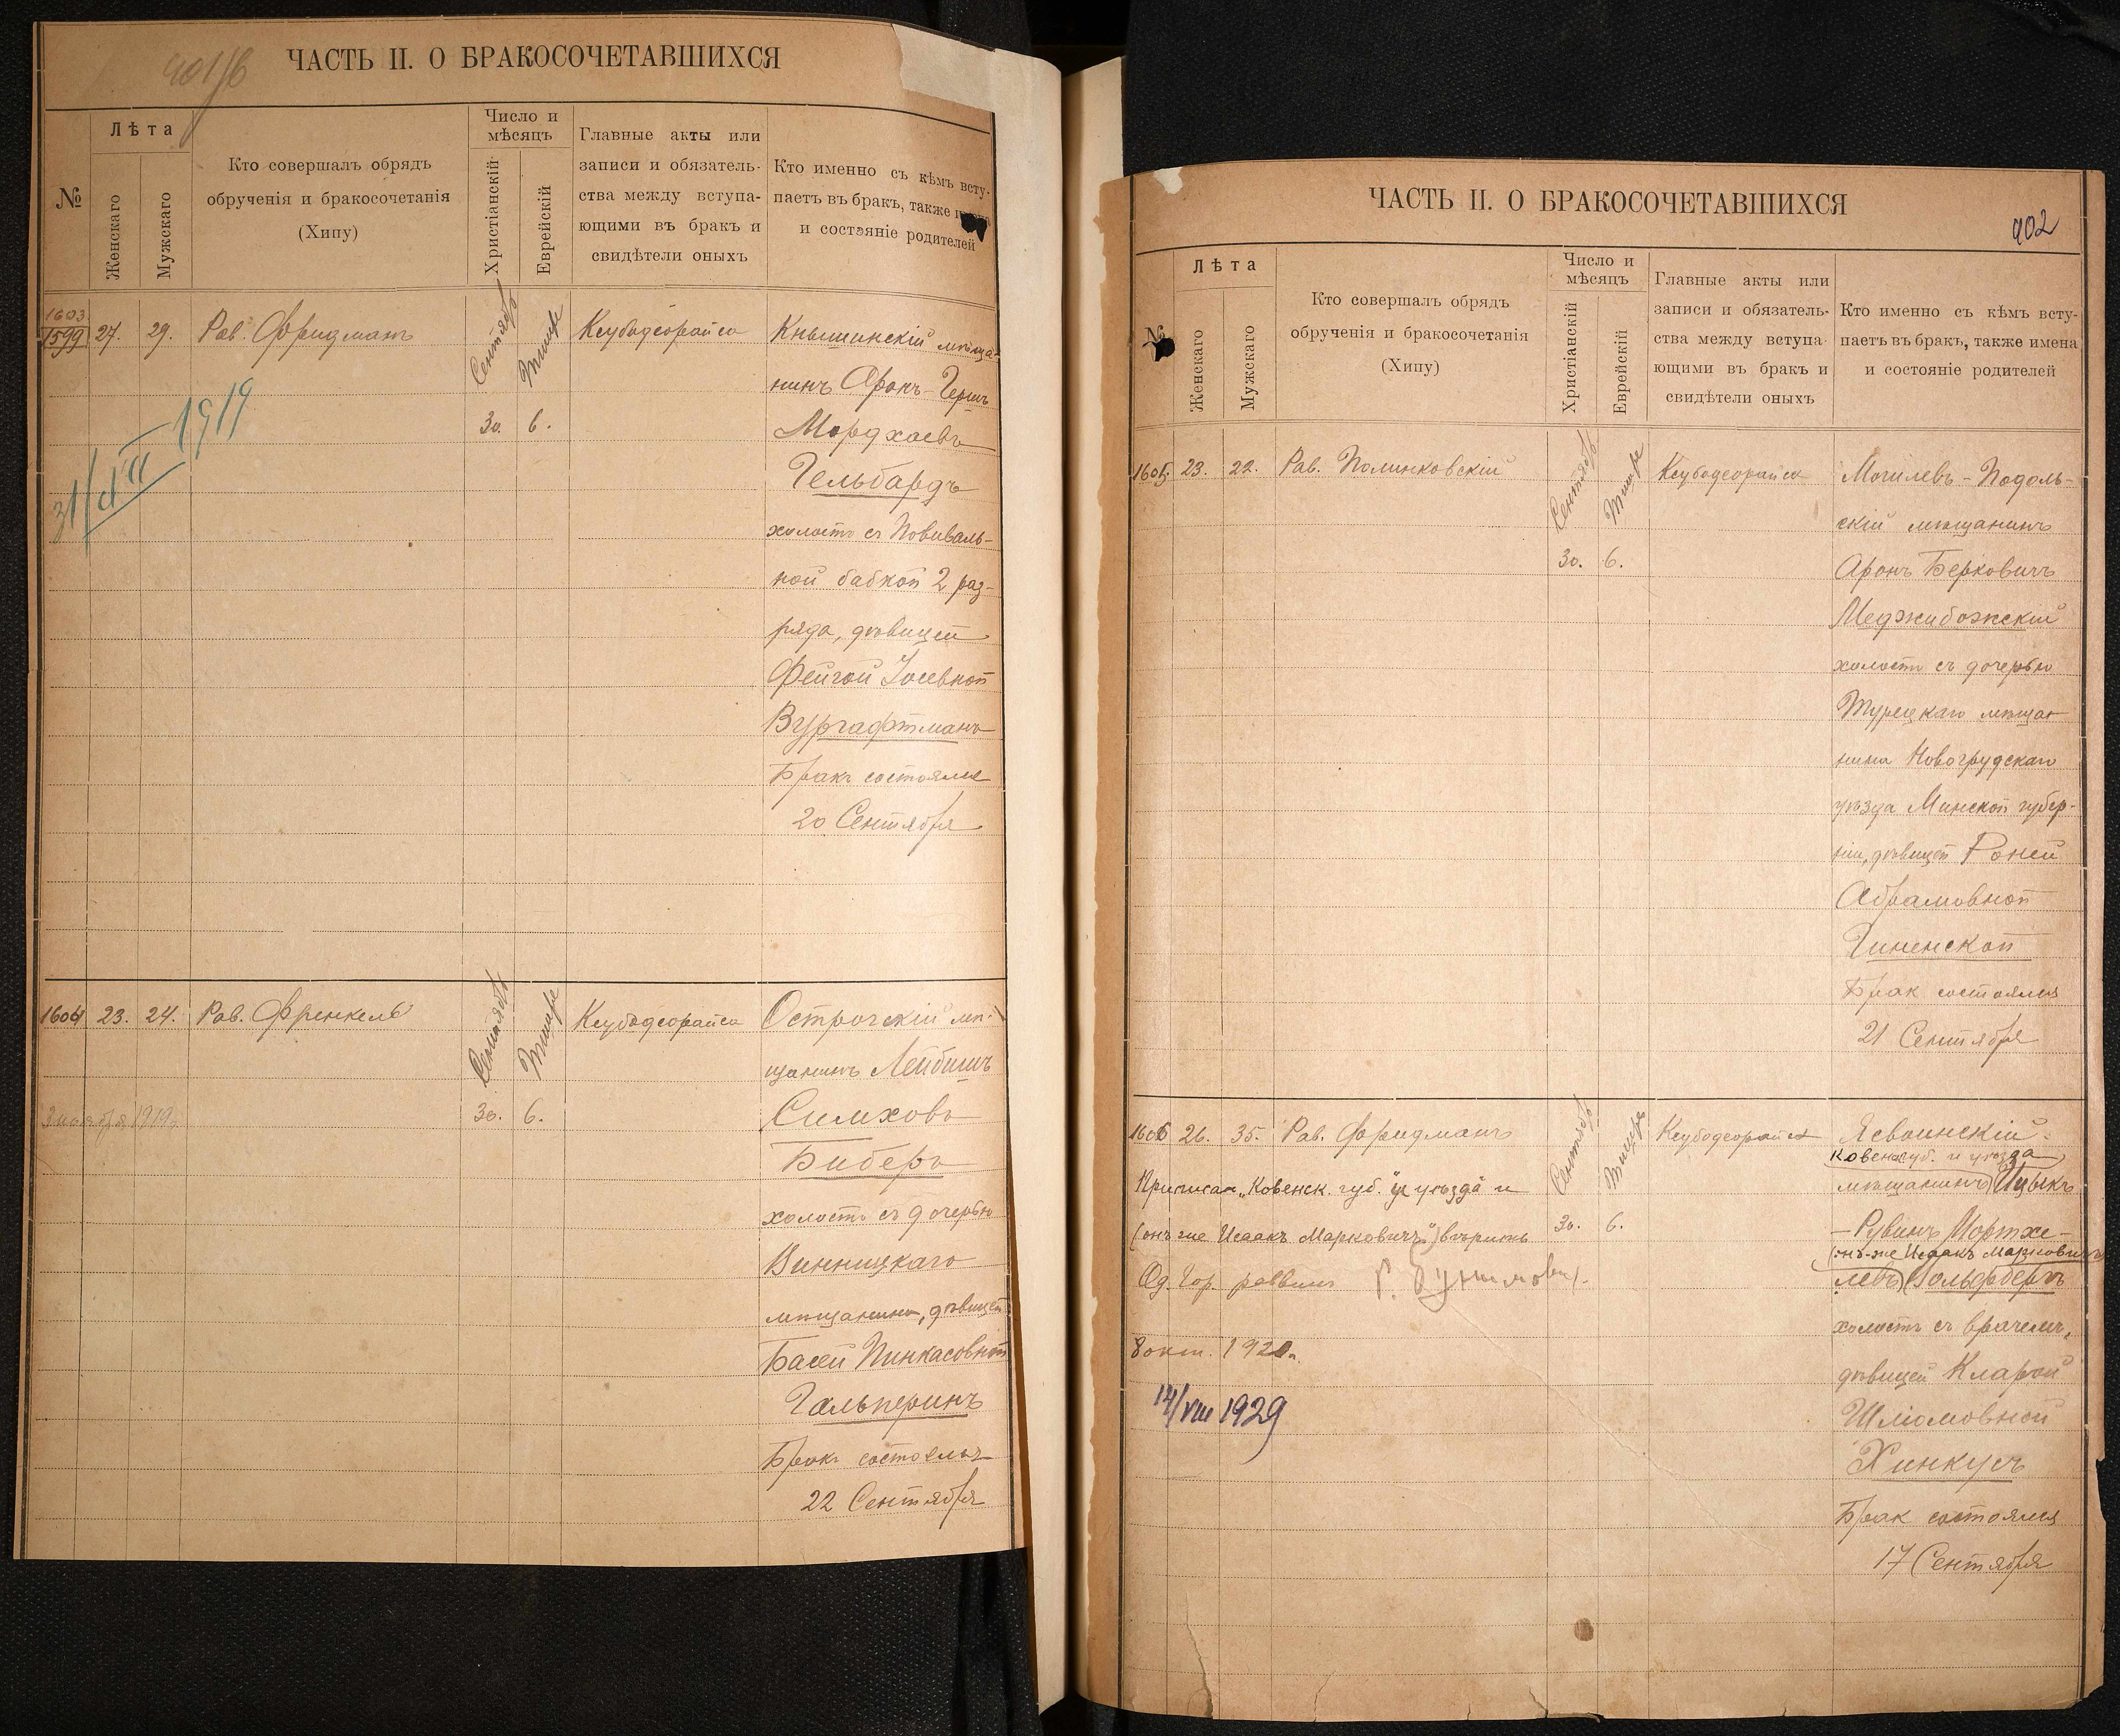 ЧАСТЬ II. О БРАКОСОЧЕТАВШИХСЯ
№
Лѣта
Женскаго
Мужскаго
Кто совершалъ обрядъ
обрученія и бракосочетанія
(Хипу)
Число и
мѣсяцъ
Христіанскій
Еврейскій
Главные акты или
записи и обязатель-
ства между вступа-
ющими въ бракъ и
свидѣтели оныхъ
Кто именно съ кѣмъ всту-
паетъ въ бракъ, также
и состояніе родителей
1603
1599
27.
29.
Рав. Фридманъ
Сентябрь
Тишре
30.
6.
Ксубодеорайса
Кнышинскій мѣща-
нинъ Аронъ-Гершъ
Мордхаевъ
Гельбардъ
холостъ съ Повиваль-
ной бабкой 2 раз-
ряда, дѣвицей
Фейгой Іосевной
Вургафтманъ
Бракъ состоялся
20 Сентября
31/VII 1919
1604
23.
24.
Рав. Френкель
Сентябрь
Тишре
30.
6.
Ксубодеорайса
Острогскій мѣ-
щанинъ Лейбишъ
Симховъ
Биберъ
холостъ съ дочерью
Винницкаго
мѣщанина, дѣвицей
Басей Пинкасовной
Гальперинъ
Бракъ состоялся
22 Сентября
ноября 1919
ЧАСТЬ II. О БРАКОСОЧЕТАВШИХСЯ
402
Лѣта
Женскаго
Мужскаго
Кто совершалъ обрядъ
обрученія и бракосочетанія
(Хипу)
Число и
мѣсяцъ
Христіанскій
Еврейскій
Главные акты или
записи и обязатель-
ства между вступа-
ющими въ бракъ и
свидѣтели оныхъ
Кто именно съ кѣмъ всту-
паетъ въ бракъ, также имена
и состояніе родителей
1605
23.
22.
Рав. Полинковскій
Сентябрь
Тишре
30.
6.
Ксубодеорайса
Могилевъ-Подоль-
скій мѣщанинъ
Аронъ Берковичъ
Меджибожскій
холостъ съ дочерью
Турецкаго мѣща-
нина Новогрудскаго
уѣзда Минской губер-
ніи, дѣвицей Роней
Абрамовной
Гиненской
Бракъ состоялся
21 Сентября
1606
26.
35.
Рав. Фридманъ
Сентябрь
Тишре
30.
6.
Ксубодеорайса
Ясвоинскій
Ковен. губ. и уѣзда
мѣщанинъ Ицыкъ
-Рувинъ Мортхе-
(онъ-же Исаакъ Марковичъ)
левъ Гольдбергъ
холостъ съ врачемъ,
дѣвицей Кларой
Шліомовной
Хинкусъ
Бракъ состоялся
17 Сентября
Приписан. „Ковенск. губ. и уѣзда" и
(онъ же Исаакъ Марковичъ") вѣрить
Од. Гор. раввинъ
8 окт. 1920
14/VIII 1929